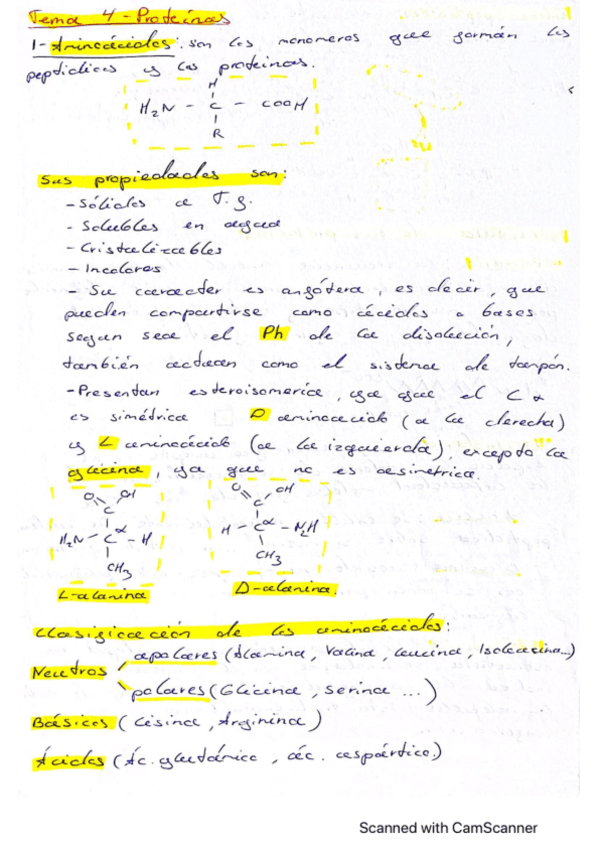 Tema 4 - Proteínas
1- Aminoácidos: son los monomeros que forman los
peptidicos y las proteinas.
H
H₂N - C - COOH
R
Sus propiedades son:
- Sólidos a T.g.
- Solubles en agua
- Cristalizables
- Incoloros
- Su caracter es anfótera, es decir, que
pueden compartirse como ácidos o bases
segun sea el Ph de la disolución,
también actuan como el sistema de tampón.
- Presentan esteroisomeria, ya que el C α
es simétrica D aminoacido (a la derecha)
y L aminoácido (a la izquierda), excepto la
glicina, ya que no es asimetrica.
O OH
C
H₂N - C α - H
CH₃
L-alanina
O OH
C
H - C α - N₂H
CH₃
D-alanina.
Clasificación de los aminoácidos:
Neutros
apolares (Alamina, Valina, Leucina, Isoleucina...)
polares (Glicina, serina ...)
Básicos (Lisina, Arginina)
Ácidos (Ác. glutámico, ác. aspártico)
Scanned with CamScanner